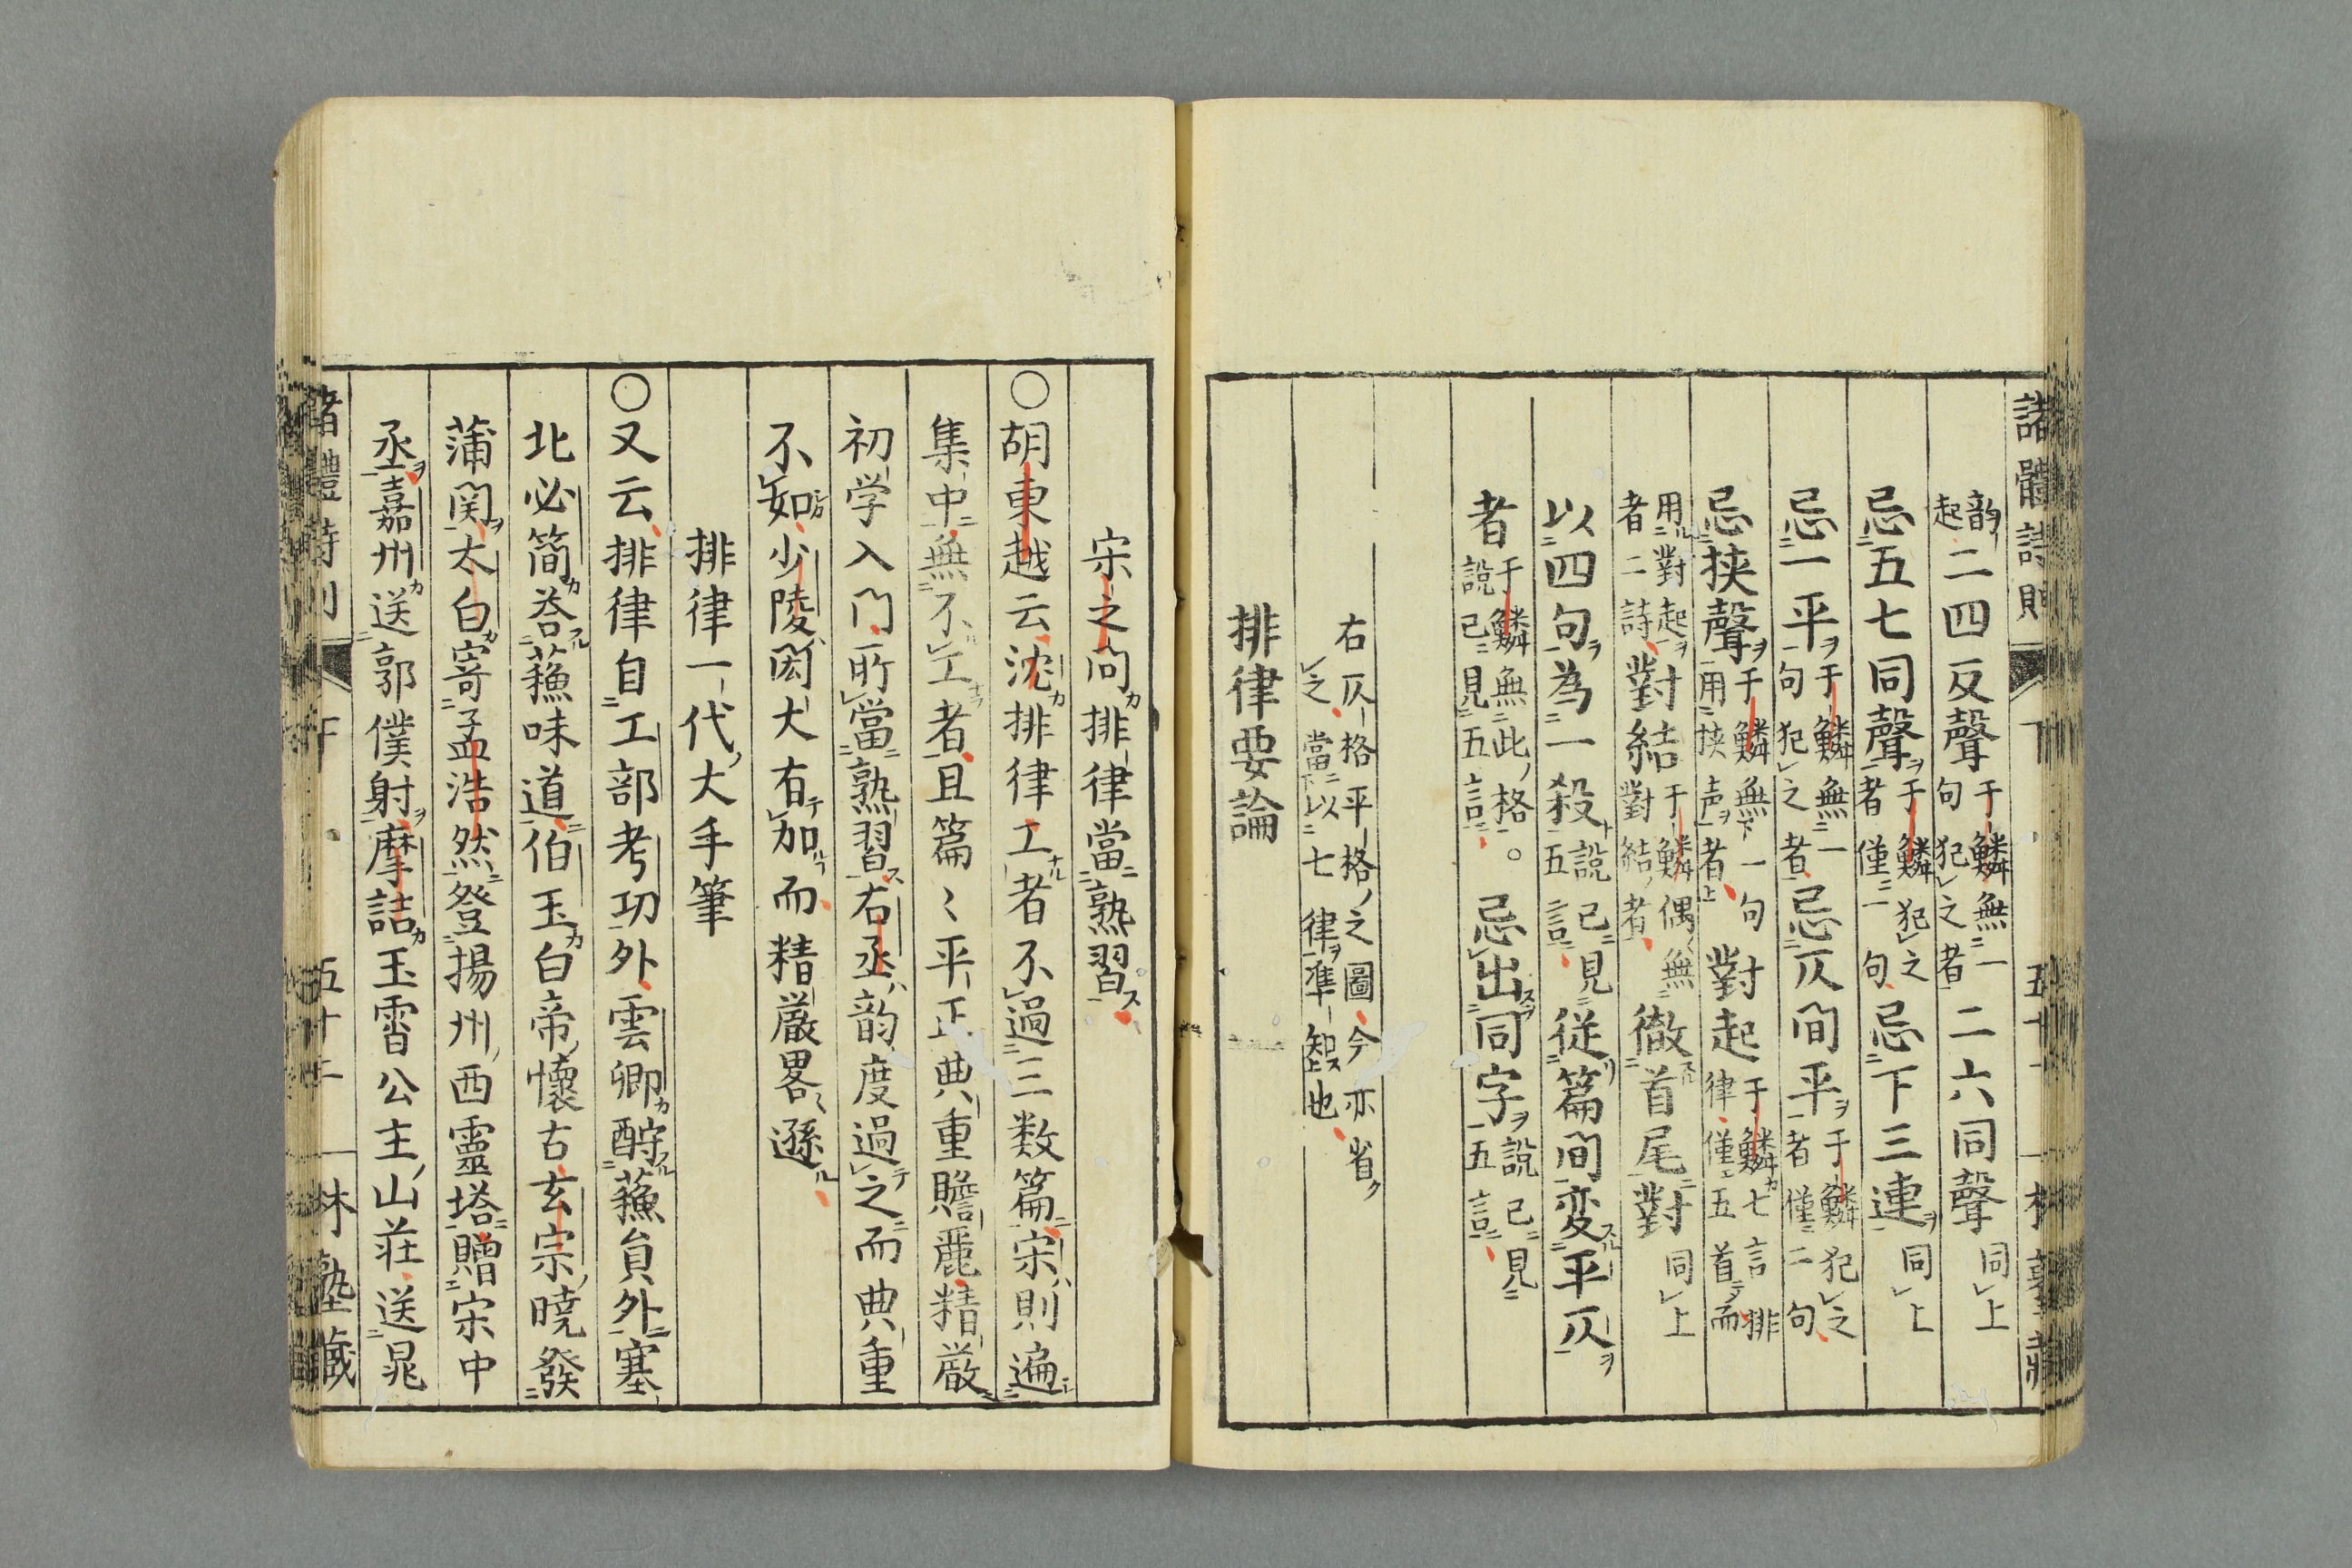 諸體詩則 下 五十一
韵起二四反聲于鱗無一句犯之者二六同聲同上
忌五七同聲于鱗犯之者僅一句忌下三連同上
忌一平于鱗無一句犯之者忌仄間平于鱗犯之者僅二句
忌挾聲于鱗無一句用挾声者對起于鱗七言排律僅五首而
用對起者二詩對結于鱗偶無對結者徹首尾對同上
以四句為一殺說已見五言從篇間変平仄
者于鱗無此格說已見五言。忌出同字說已見五言
右仄格平格之圖今亦省
之當以七律準智也
排律要論
宋之問排律當熟習
○胡東越云沈排律工者不過三数篇宋則遍
集中無不工者且篇〻平正典重贍麗精厳
初学入門所當熟習右丞韵度過之而典重
不如少陵閎大有加而精厳畧遜
排律一代大手筆
○又云排律自工部考功外雲卿酧蘓貟外塞
北必簡荅蘓味道伯玉白帝懷古玄宗曉發
蒲関太白寄孟浩然登揚州西靈塔贈宋中
丞嘉州送郭僕射摩詰玉霄公主山荘送晁
諸體詩則 下 五十二 林塾藏